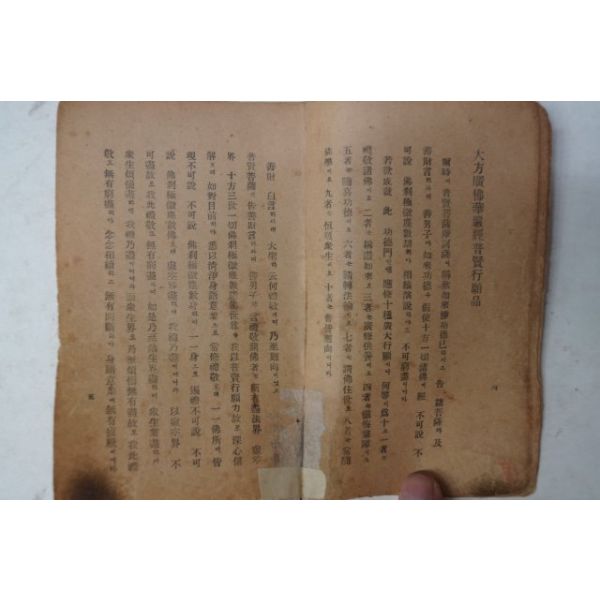 大方廣佛華嚴經普賢行願品
爾時에 普賢菩薩摩訶薩이 稱歎如來勝功德已하시고 告 諸菩薩과 及
善財言하사대 善男子야 如來功德은 假使十方一切諸佛이 經 不可說 不
可說 佛刹極微塵數劫하야 相續演說하야도 不可窮盡이니라
若欲成就 此 功德門인댄 應修十種廣大行願이니 何等이 爲十고 一者는
禮敬諸佛이요 二者는 稱讚如來요 三者는 廣修供養이요 四者는 懺悔業障이요
五者는 隨喜功德이요 六者는 請轉法輪이요 七者는 請佛住世요 八者는 常隨
佛學이요 九者는 恒順衆生이요 十者는 普皆廻向이니라
善財 白言하사대 大聖하 云何禮敬이며 乃至廻向이닛고
普賢菩薩이 告善財言하사대 善男子야 言禮敬諸佛者는 所有盡法界 虛空
界 十方三世一切佛刹極微塵數諸佛世尊을 我以普賢行願力故로 深心信
解하야 如對目前하야 悉以淸淨身語意業으로 常修禮敬호대 一一佛所에 皆
現不可說 不可說 佛刹極微塵數身하야 一一身으로 徧禮不可說 不可
說 佛刹極微塵數佛호대 虛空界盡하면 我禮乃盡이어니와 以虛空界 不
可盡故로 我此禮敬도 無有窮盡이며 如是乃至衆生界盡하며 衆生業盡하며
衆生煩惱盡하면 我禮乃盡이어니와 而衆生界로 乃至煩惱無有盡故로 我此禮
敬도 無有窮盡하야 念念相續하고 無有間斷하야 身語意業이 無有疲厭이니라
五